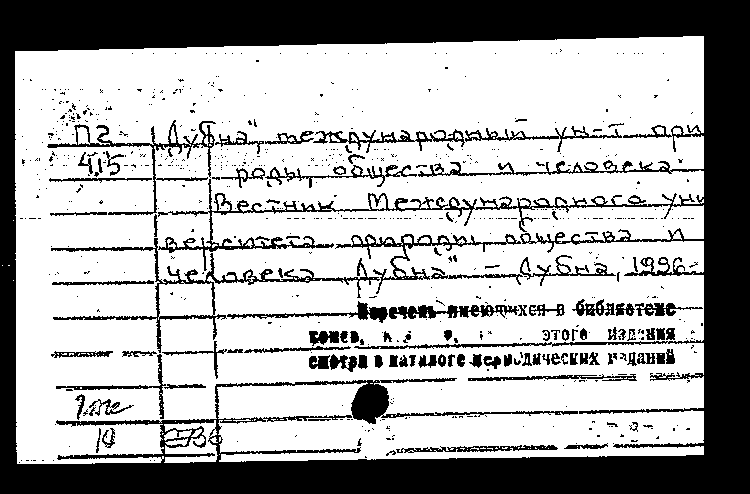 П2 „Дубна", международный ун-т при
415 роды, общества и человека.
Вестник Международного уни
верситета природы, общества и
человека „Дубна" - Дубна, 1996-
Перечень имеющихся в библиотеке
этого издания
смотри в каталоге периодических изданий
10